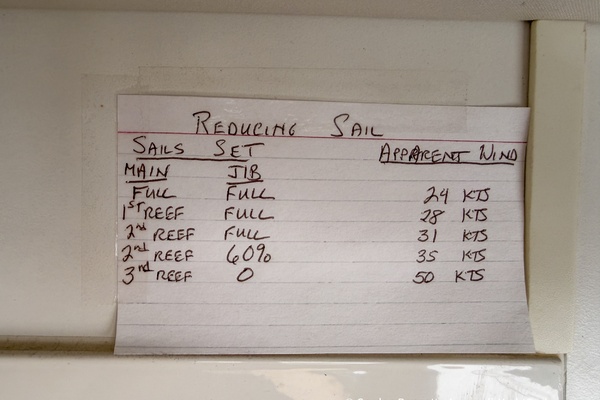 REDUCING SAIL
SAILS SET APPARENT WIND
MAIN JIB
FULL FULL 24 KTS
1ST REEF FULL 28 KTS
2nd REEF FULL 31 KTS
2nd REEF 60% 35 KTS
3rd REEF 0 50 KTS